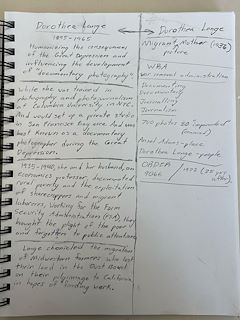 Dorothea Lange
1895-1965
Humanizing the consequences
of the Great Depression and
influencing the development
of "documentary photography".
While she was trained in
photography and photojournalism
at Columbia University in NYC.
And would set up a private studio
in San Francisco
best known as a documentary
photographer during the Great
Depression.
1935-1940, she and her husband, an
economics professor, documented
rural poverty and the exploitation
of sharecroppers and migrant
laborers, working for the Farm
Security Administration (FSA), they
brought the plight of the poor
and forgotten to public attention.
Lange chronicled the migration
of Midwestern farmers who lost
their land in the Dust Bowl
on their pilgrimage to California
in hopes of finding work.
Dorothea Lange
Migrant Mother (1936)
picture
WRA
war administration
Documenting
Documentary
Journalism
700 photos 50
Ansel Adams - place
Dorothea Lange - people
ORDER
9066
1972 (25 yrs